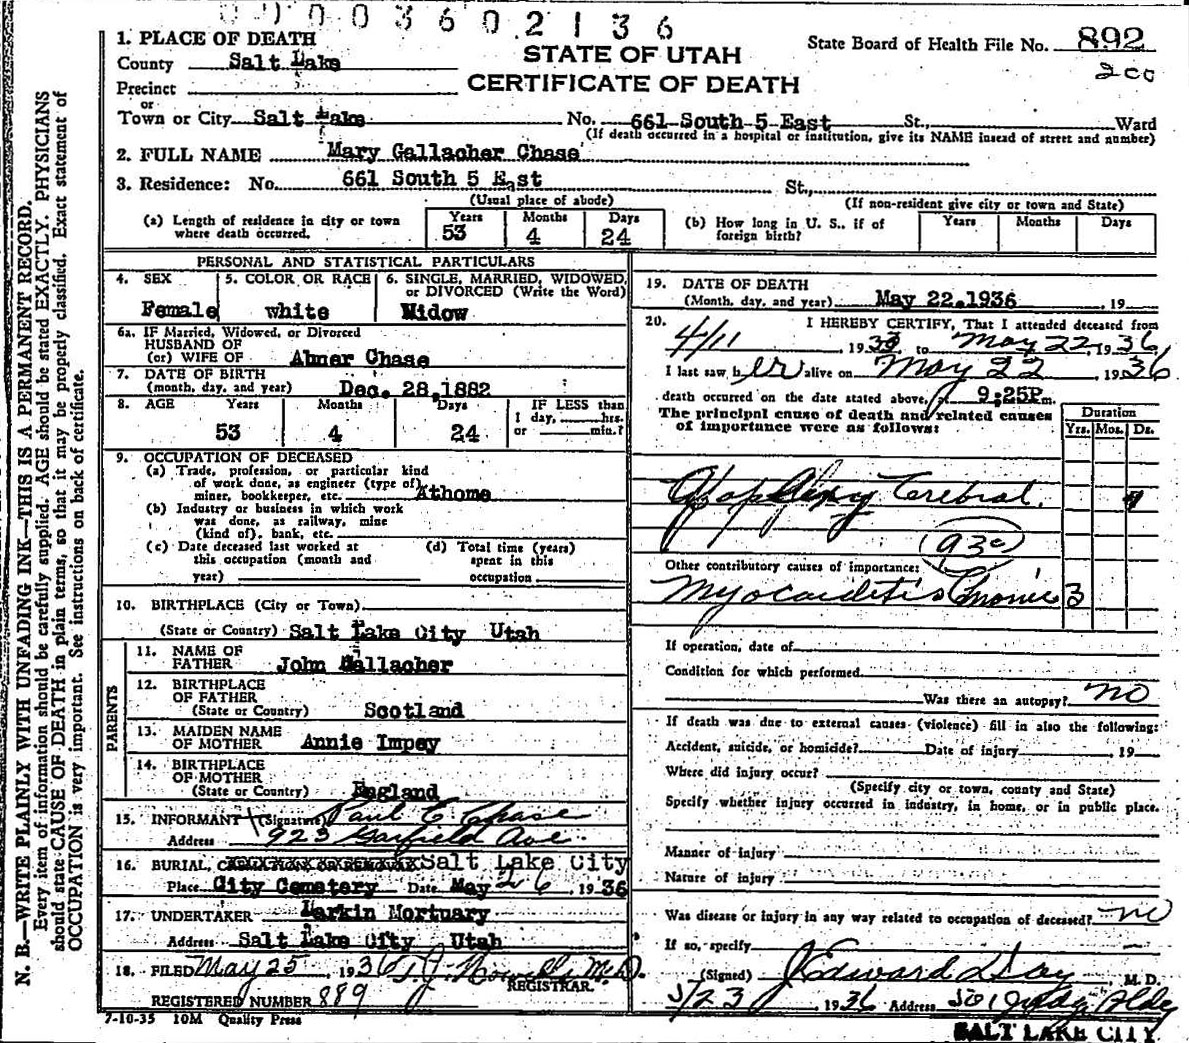 0003602136
1. PLACE OF DEATH
STATE OF UTAH
State Board of Health File No. 892
County Salt Lake
CERTIFICATE OF DEATH
200
Precinct
or
Town or City Salt Lake No. 661 South 5 East St., Ward
(If death occurred in a hospital or institution, give its NAME insead of street and number)
2. FULL NAME Mary Gallacher Chase
3. Residence: No. 661 South 5 East St.,
(Usual place of abode) (If non-resident give city or town and State)
(a) Length of residence in city or town where death occurred. Years 53 Months 4 Days 24
(b) How long in U. S., if of foreign birth? Years Months Days
PERSONAL AND STATISTICAL PARTICULARS
4. SEX Female
5. COLOR OR RACE white
6. SINGLE, MARRIED, WIDOWED, or DIVORCED (Write the Word) Widow
6a. IF Married, Widowed, or Divorced
HUSBAND OF
(or) WIFE OF Abner Chase
7. DATE OF BIRTH
(month, day, and year) Dec. 28,1882
8. AGE Years 53 Months 4 Days 24
IF LESS than
1 day, hrs.
or min.?
9. OCCUPATION OF DECEASED
(a) Trade, profession, or particular kind
of work done, as engineer (type of)
miner, bookkeeper, etc. Athome
(b) Industry or business in which work
was done, as railway, mine
(kind of), bank, etc.
(c) Date deceased last worked at
this occupation (month and
year)
(d) Total time (years)
spent in this
occupation
10. BIRTHPLACE (City or Town)
(State or Country) Salt Lake City Utah
PARENTS
11. NAME OF
FATHER John Gallacher
12. BIRTHPLACE
OF FATHER
(State or Country) Scotland
13. MAIDEN NAME
OF MOTHER Annie Impey
14. BIRTHPLACE
OF MOTHER
(State or Country) England
15. INFORMANT (Signature) Paul C. Chase
Address 923 Garfield Ave
16. BURIAL, CREMATION OR REMOVAL Salt Lake City
Place City Cemetery Date May 26, 1936
17. UNDERTAKER Larkin Mortuary
Address Salt Lake City Utah
18. FILED May 25, 1936 M.D.
REGISTRAR.
REGISTERED NUMBER 889
7-10-35 10M Quality Press
19. DATE OF DEATH
(Month, day, and year) May 22.1936, 19
20. I HEREBY CERTIFY, That I attended deceased from
4/11, 1933 to May 22, 1936
I last saw her alive on May 22 1936
death occurred on the date stated above, 9:25P m.
The principal cause of death and related causes
of importance were as follows:
Duration
Yrs. Mos. Ds.
Apoplexy Cerebral.
93c
Other contributory causes of importance:
Myocarditis Chronic 3
If operation, date of
Condition for which performed
Was there an autopsy? no
If death was due to external causes (violence) fill in also the following:
Accident, suicide, or homicide? Date of injury 19
Where did injury occur?
(Specify city or town, county and State)
Specify whether injury occurred in industry, in home, or in public place.
Manner of injury
Nature of injury
Was disease or injury in any way related to occupation of deceased? no
If so, specify
(Signed) J Edward Day M. D.
5/23 1936 Address Judge Bldg
SALT LAKE CITY
N. B.—WRITE PLAINLY WITH UNFADING INK—THIS IS A PERMANENT RECORD.
Every item of information should be carefully supplied. AGE should be stated EXACTLY. PHYSICIANS
should state CAUSE OF DEATH in plain terms, so that it may be properly classified. Exact statement of
OCCUPATION is very important. See instructions on back of certificate.